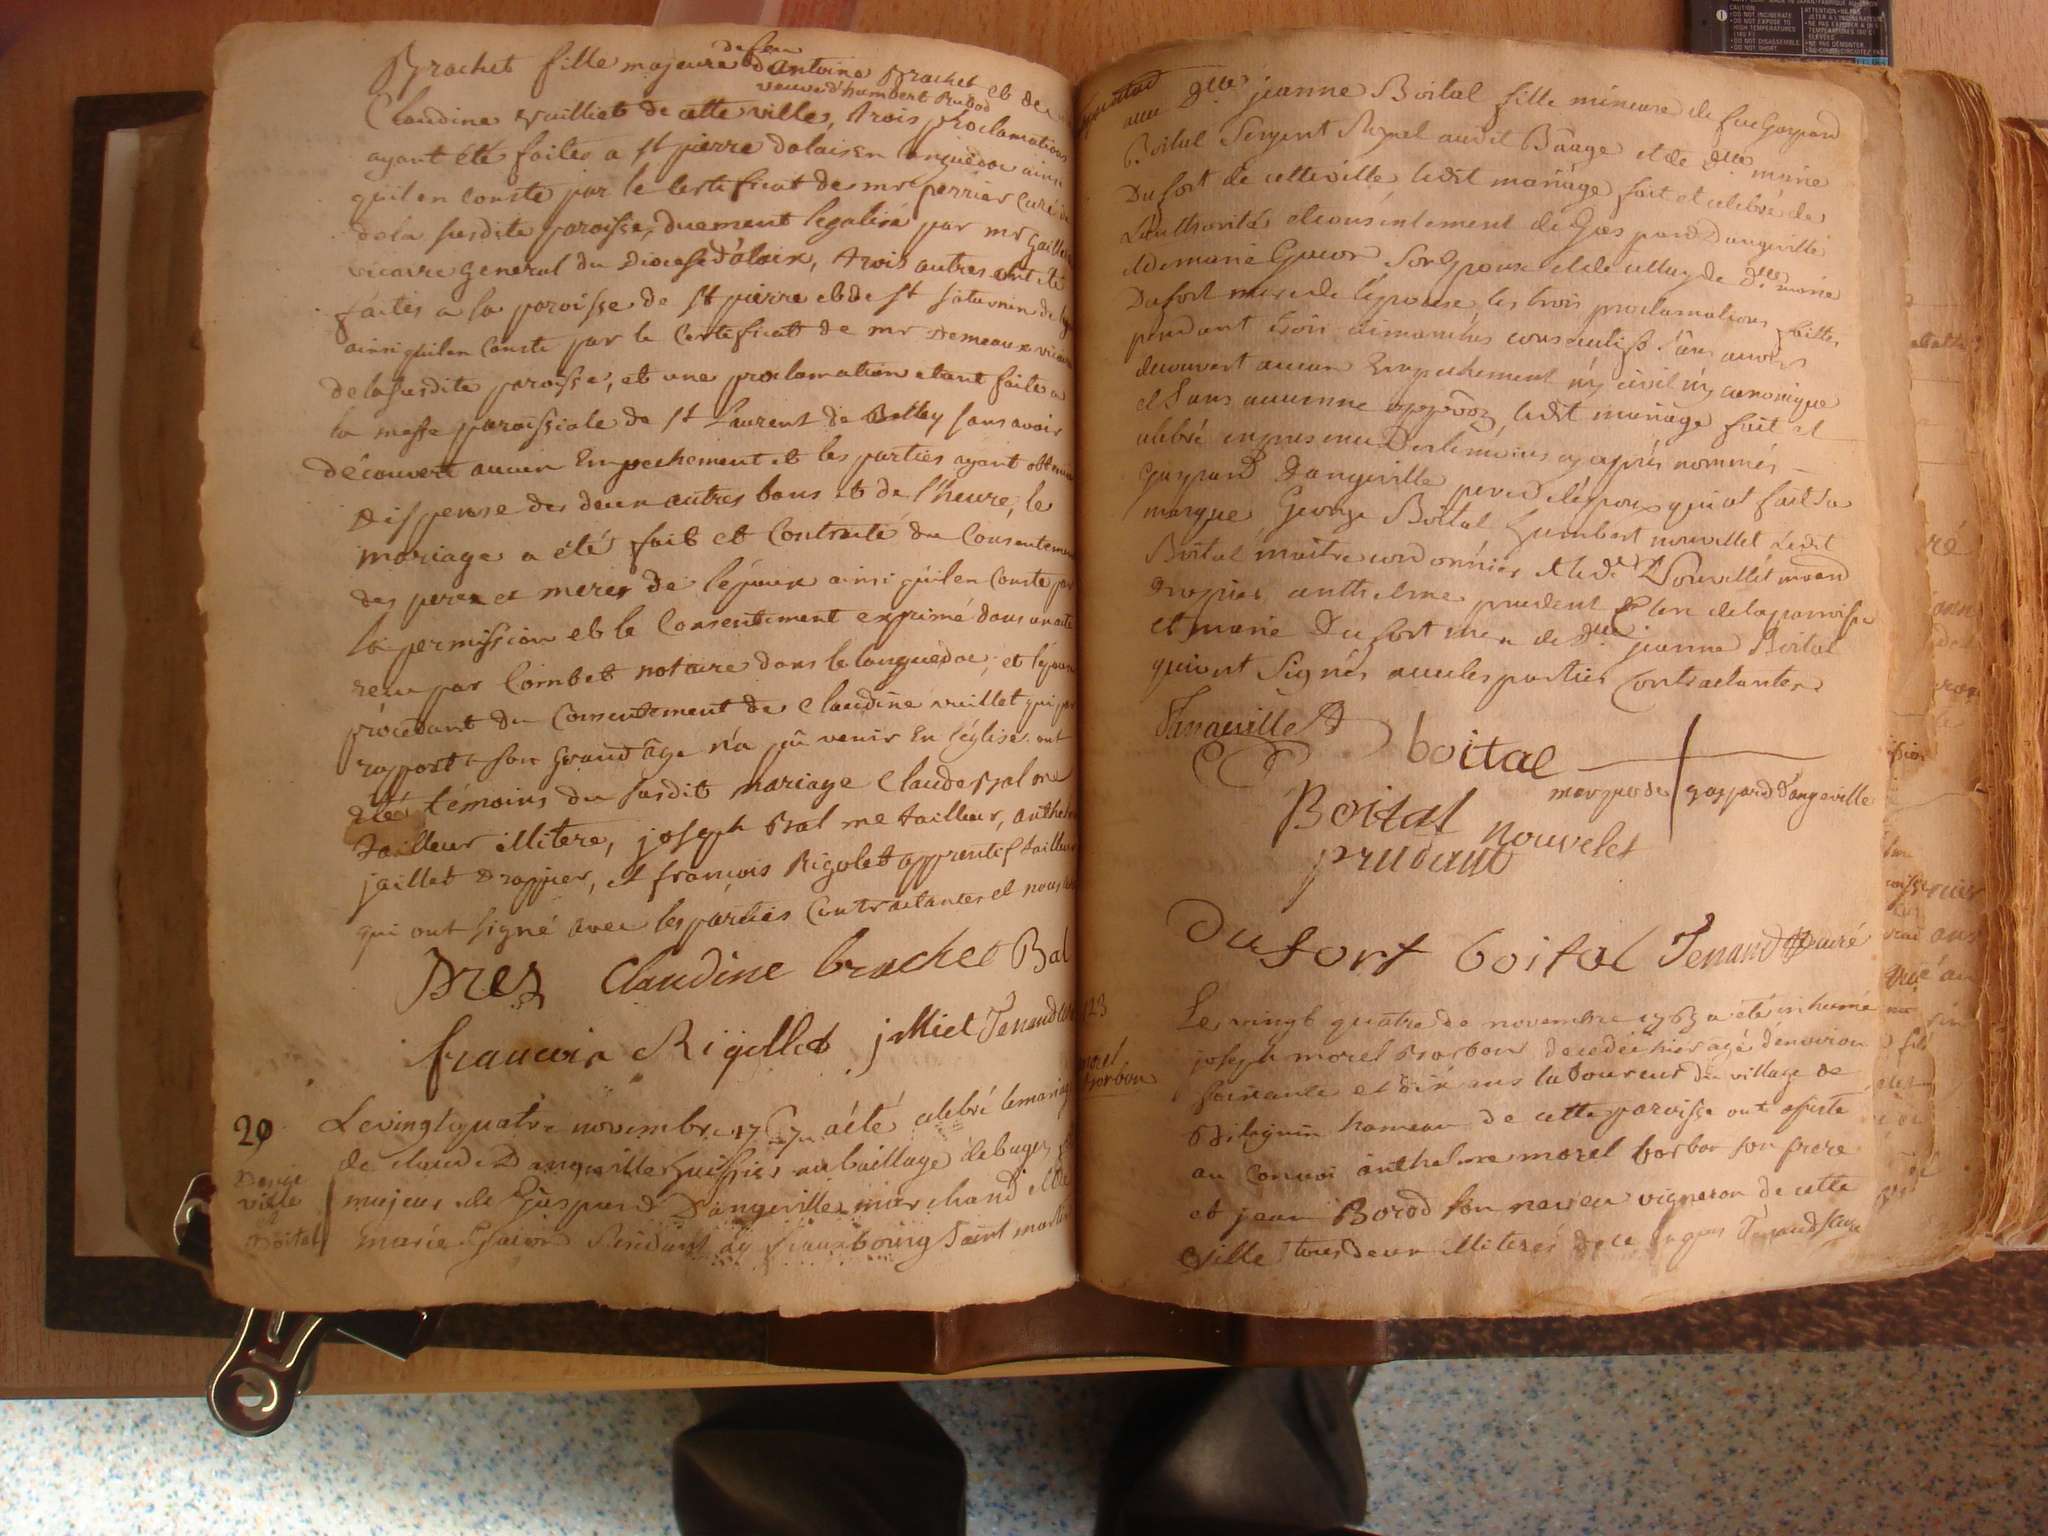 Brachet fille majeure de feu d'antoine Brachet et de
veuve d'humbert Rubod
Claudine vuilliet de cette ville, trois proclamations
ayant été faites a st pierre dalais en languedoc ainsi
quil en conste par le Certificat de mr perrier Curé
de la susdite paroisse, duement legalisé par mr
vicaire general du Diocese d'alaix, trois autres ont été
faites a la paroisse de st pierre et de st saturnin de
ainsi quil en conste par le Certificat de mr Demeaux vicaire
de la susdite paroisse, et une proclamation etant faite a
la messe paroissiale de st Laurent de Belley sans avoir
découvert aucun Empechement et les parties ayant obtenu
dispense des deux autres bans et de l'heure, le
mariage a été fait et Contracté du Consentement
des pere et mere de l'époux ainsi quil en Conste par
la permission et le Consentement exprimé dans un acte
recu par Combet notaire dans le languedoc; et l'épouse
procedant du Consentement de Claudine vuillet qui par
rapport a son grand âge n'a pû venir En l'église. ont
été témoins du susdit mariage Claude Bal me
tailleur illitere, joseph Bal me tailleur, anthelme
jaillet drappier, et francois Rigolet apprentif tailleur
qui ont signé avec les parties Contractantes et nous
Dres Claudine brachet Bal
francois Rigollet jalliet Tenand
29
Dangeville
et
Boital
Le vingt quatre novembre 1767 a été celebré le mariage
de claude Dangeville huissier au baillage de bugey, fils
majeur de Gaspard Dangeville marchand et de
marie Guion Residant au fauxbourg saint martin
avec Dlle jeanne Boital fille mineure de feu Gaspard
Boital Sergent Royal audit Bauge et de Dlle marie
Dufort de cette ville ledit mariage fait et celebré de
L'authorité et consentement de Gaspard Dangeville
et de marie Guion son Epouse et de celluy de Dlle marie
Dufort mere de l'epouse, les trois proclamations faittes
pendant trois dimanches consecutifs sans avoir
decouvert aucun Empechement ny civil ny canonique
et sans aucunne oppôon, ledit mariage fait et
celebré en presence Des temoins cy après nommés
Gaspard Dangeville pere de l'epoux qui at fait sa
marque, George Boital humbert nouvellet ledit
Boital maitre cordonnier et le dt Nouvellet md
drapier anthelme prudent Clerc de la paroisse
et marie Dufort mere de Dlle jeanne Boital
qui ont Signés avec les parties Contractantes
Dangeville boital
marque de gaspard Dangeville
Boital nouvelet
prudant
Dufort boital Tenand Curé
123
morel
borbon
Le vingt quatre de novembre 1767 a été inhumé
joseph morel Borbon decedé hier agé d'environ
soixante et dix ans laboureur du village de
Bilignin hameau de cette paroisse ont assisté
au Convoi anthelme morel borbon son frere
et jean Borod son neveu vigneron de cette
ville tous deux illiterés de ce enquis Tenand Curé